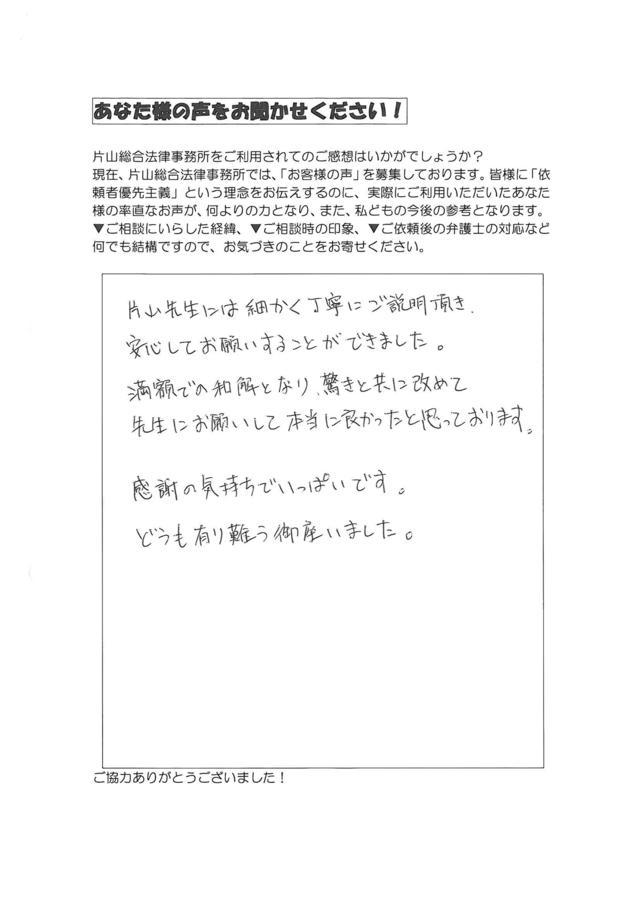 あなた様の声をお聞かせください！
片山総合法律事務所をご利用されてのご感想はいかがでしょうか？
現在、片山総合法律事務所では、「お客様の声」を募集しております。皆様に「依
頼者優先主義」という理念をお伝えするのに、実際にご利用いただいたあなた
様の率直なお声が、何よりの力となり、また、私どもの今後の参考となります。
▼ご相談にいらした経緯、▼ご相談時の印象、▼ご依頼後の弁護士の対応など
何でも結構ですので、お気づきのことをお寄せください。
片山先生には細かく丁寧にご説明頂き、
安心してお願いすることができました。
満額での和解となり、驚きと共に改めて
先生にお願いして本当に良かったと思っております。
感謝の気持ちでいっぱいです。
どうも有り難う御座いました。
ご協力ありがとうございました！